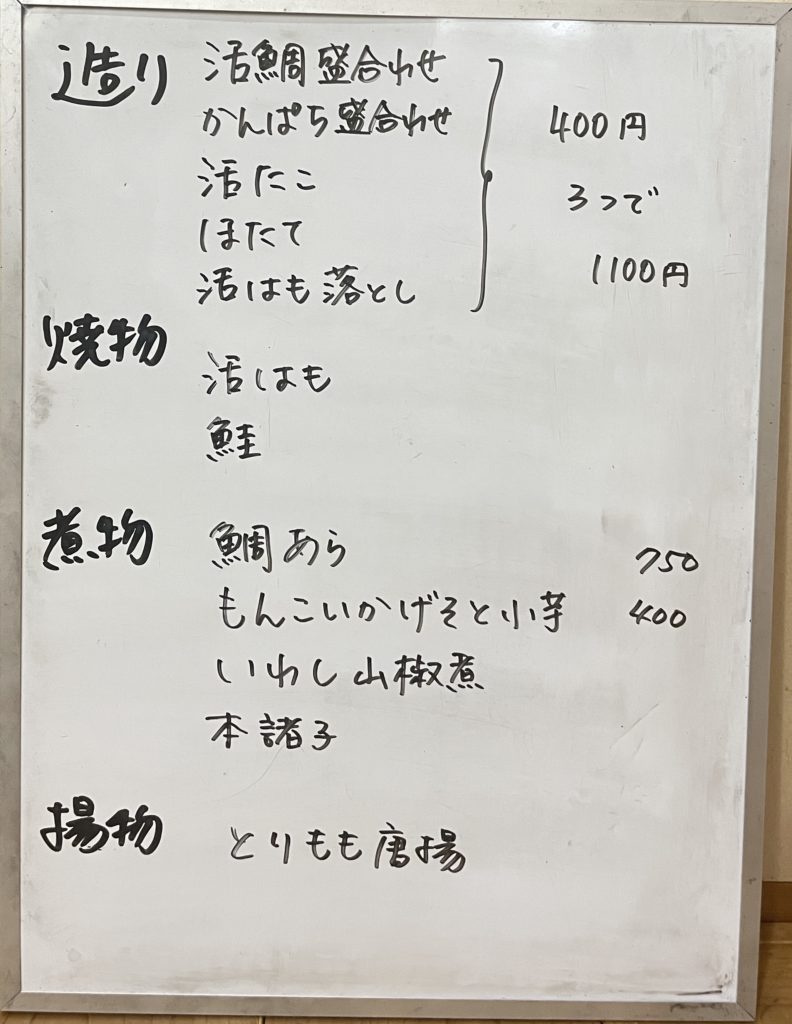 造り 活鯛盛合わせ
かんぱち盛合わせ 400円
活たこ 3つで
ほたて
活はも落とし 1100円
焼物
活はも
鮭
煮物 鯛あら 750
もんこいかげそと小芋 400
いわし山椒煮
本諸子
揚物 とりもも唐揚